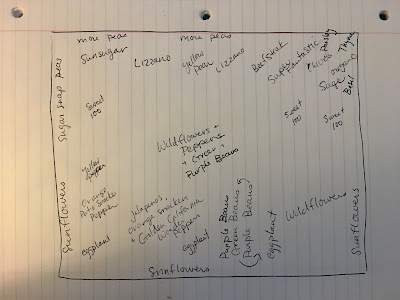 more peas
more peas
Sunsugar
Lizzano
yellow
pear
Lizzano
Beefsteak
Super
Fantastic
Chives
Parsley
Thyme
oregano
Sage
Basil
Sugar snap peas
Sweet
100
Sweet
100
Sweet
100
Wildflowers +
Peppers
+ Green +
Purple Beans
Yellow
Orange
Pepper
Jalapenos,
orange snacker
+ Golden California
Wonder
Peppers
Purple Beans
Green Beans
(Purple Beans)
Wildflowers
Sunflowers
Sunflowers
eggplant
eggplant
eggplant
Sunflowers